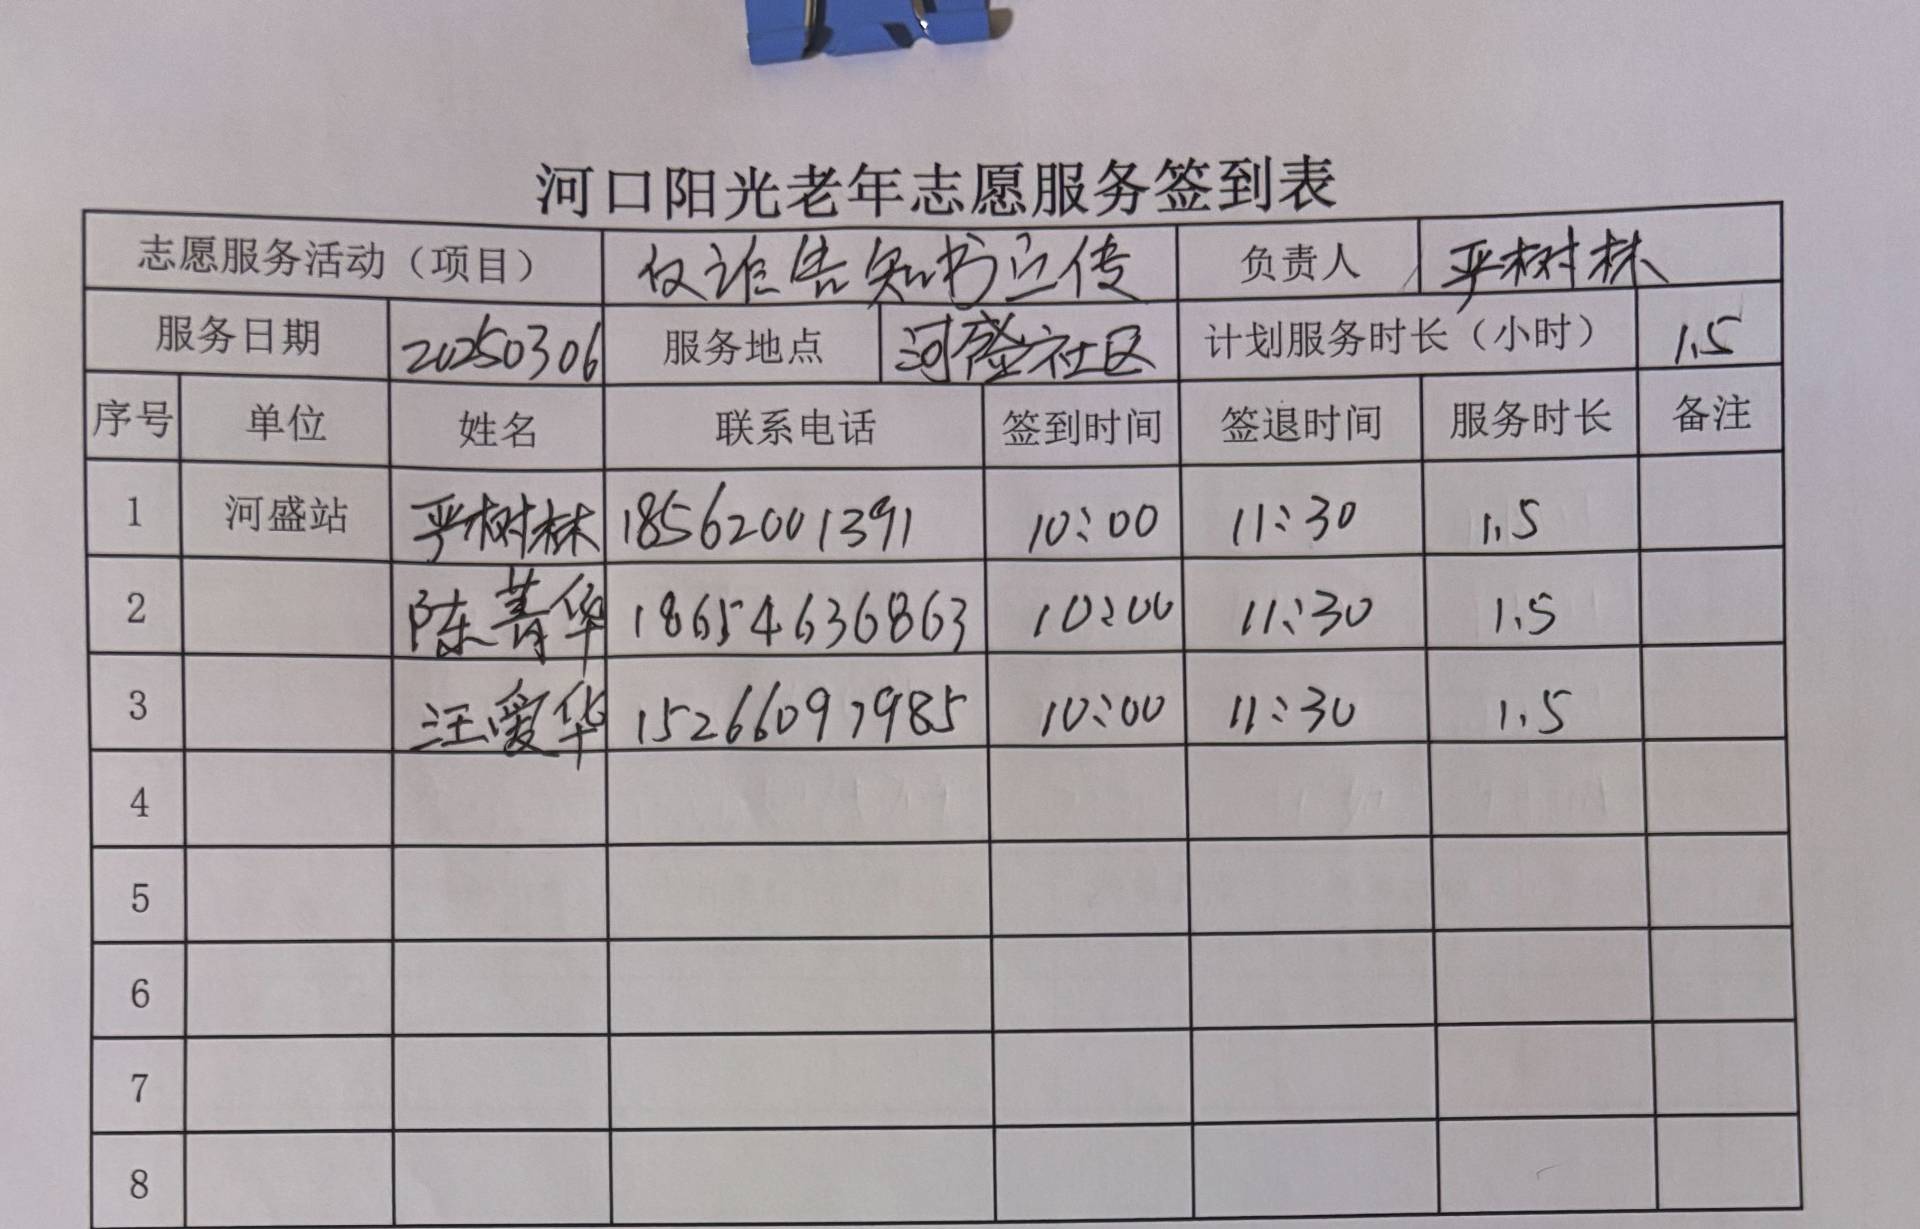 河口阳光老年志愿服务签到表
志愿服务活动（项目） 权证告知书宣传 负责人 严树林
服务日期 20250306 服务地点 河盛社区 计划服务时长（小时） 1.5
序号 单位 姓名 联系电话 签到时间 签退时间 服务时长 备注
1 河盛站 严树林 18562001391 10:00 11:30 1.5
2 陈菁华 18654636863 10:00 11:30 1.5
3 汪爱华 15266097985 10:00 11:30 1.5
4
5
6
7
8